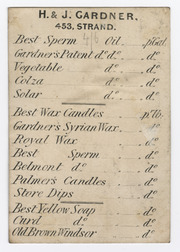 H. & J. GARDNER,
453, STRAND.
Best Sperm Oil pr Gal.
Gardner's Patent do. do. do.
Vegetable do. do.
Colza do. do.
Solar do. do.
Best Wax Candles pr lb.
Gardner's Syrian Wax. do.
Royal Wax do.
Best Sperm do.
Belmont do. do.
Palmer's Candles do.
Store Dips do.
Best Yellow Soap do.
Curd do. do.
Old Brown Windsor do.